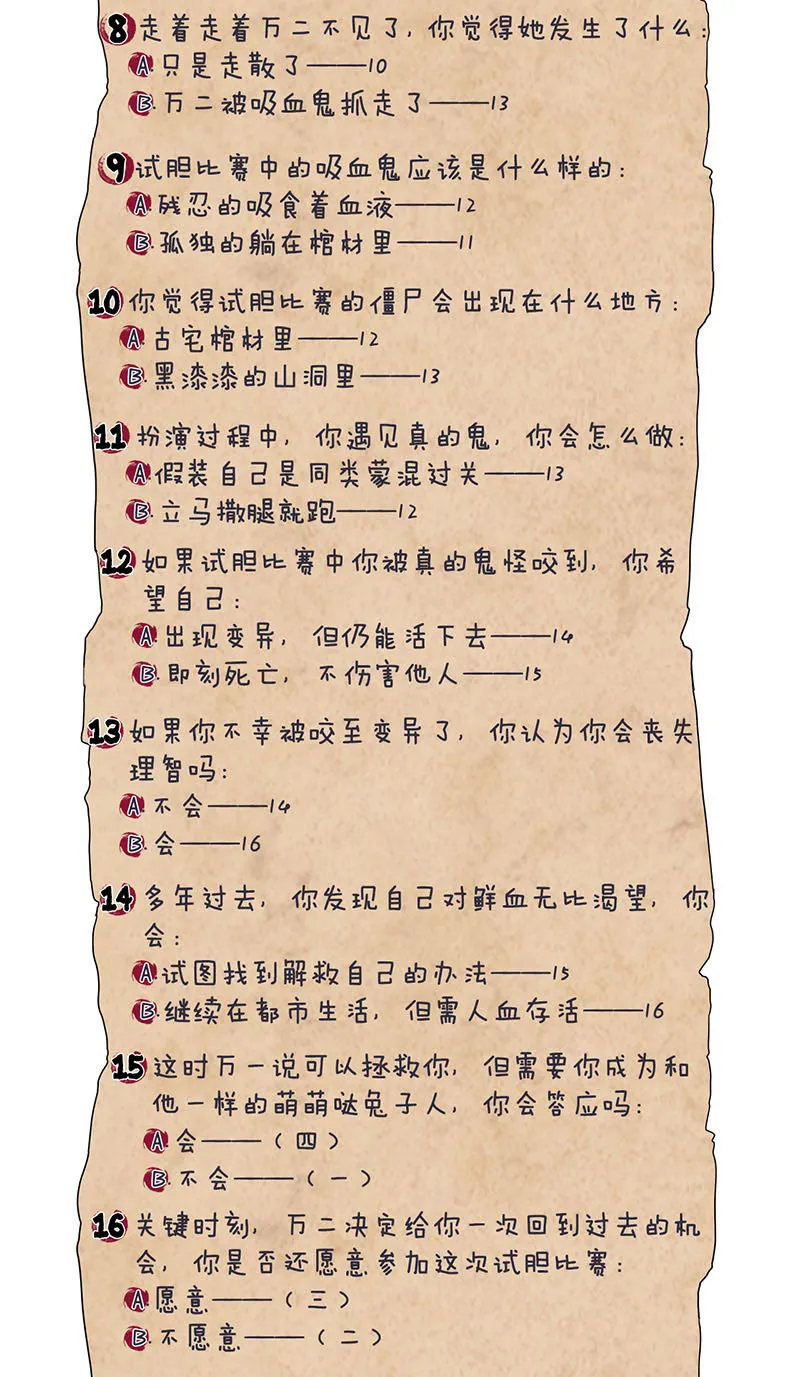 8 走着走着万二不见了,你觉得她发生了什么:
A.只是走散了——10
B.万二被吸血鬼抓走了——13
9 试胆比赛中的吸血鬼应该是什么样的:
A.残忍的吸食着血液——12
B.孤独的躺在棺材里——11
10 你觉得试胆比赛的僵尸会出现在什么地方:
A.古宅棺材里——12
B.黑漆漆的山洞里——13
11 扮演过程中,你遇见真的鬼,你会怎么做:
A.假装自己是同类蒙混过关——13
B.立马撒腿就跑——12
12 如果试胆比赛中你被真的鬼怪咬到,你希
望自己:
A.出现变异,但仍能活下去——14
B.即刻死亡,不伤害他人——15
13 如果你不幸被咬至变异了,你认为你会丧失
理智吗:
A.不会——14
B.会——16
14 多年过去,你发现自己对鲜血无比渴望,你
会:
A.试图找到解救自己的办法——15
B.继续在都市生活,但需人血存活——16
15 这时万一说可以拯救你,但需要你成为和
他一样的萌萌哒兔子人,你会答应吗:
A.会——(四)
B.不会——(一)
16 关键时刻,万二决定给你一次回到过去的机
会,你是否还愿意参加这次试胆比赛:
A.愿意——(三)
B.不愿意——(二)